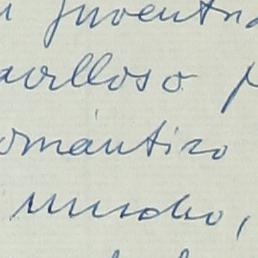 juventu
avilloso p
omántico
mucho,